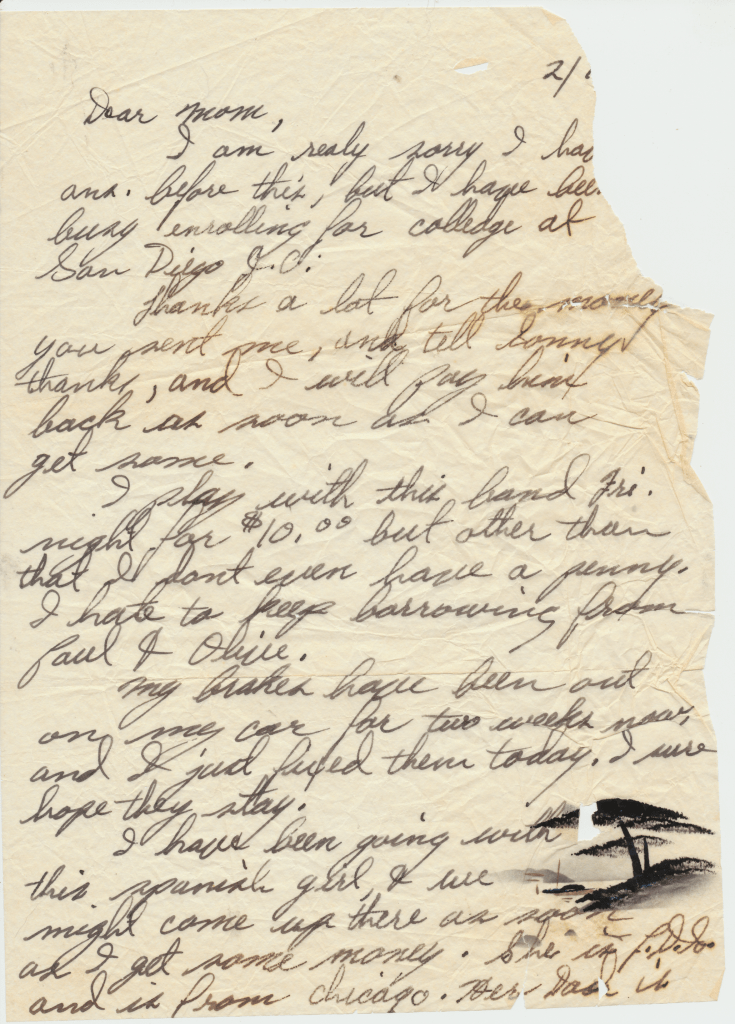 2/
Dear Mom,
I am realy sorry I hav
ans. before this, but I have bee
busy enrolling for colledge at
San Diego J.C.
Thanks a lot for the money
you sent me, and tell Sonny
thanks, and I will pay him
back as soon as I can
get some.
I play with this band Fri.
night for $10.00 but other than
that I dont even have a penny.
I hate to keep borrowing from
Paul & Olive.
My brakes have been out
on my car for two weeks now,
and I just fixed them today. I sure
hope they stay.
I have been going with
this spanish girl, & we
might come up there as soon
as I get some money. She is L.D.S.
and is from Chicago. Her Dad is